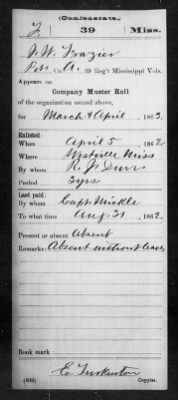 (Confederate.)
F 39 Miss.
J. W. Frazier
Pvt., Co. A., 39 Reg't Mississippi Vols.
Appears on
Company Muster Roll
of the organization named above,
for March & April, 1863.
Enlisted:
When April 5, 1862
Where Westville Miss
By whom R. J. Durr
Period 3 yrs
Last paid:
By whom Capt.
To what time Aug 31, 1862.
Present or absent Absent
Remarks: Absent without leave
Book mark:
(642) Copyist.